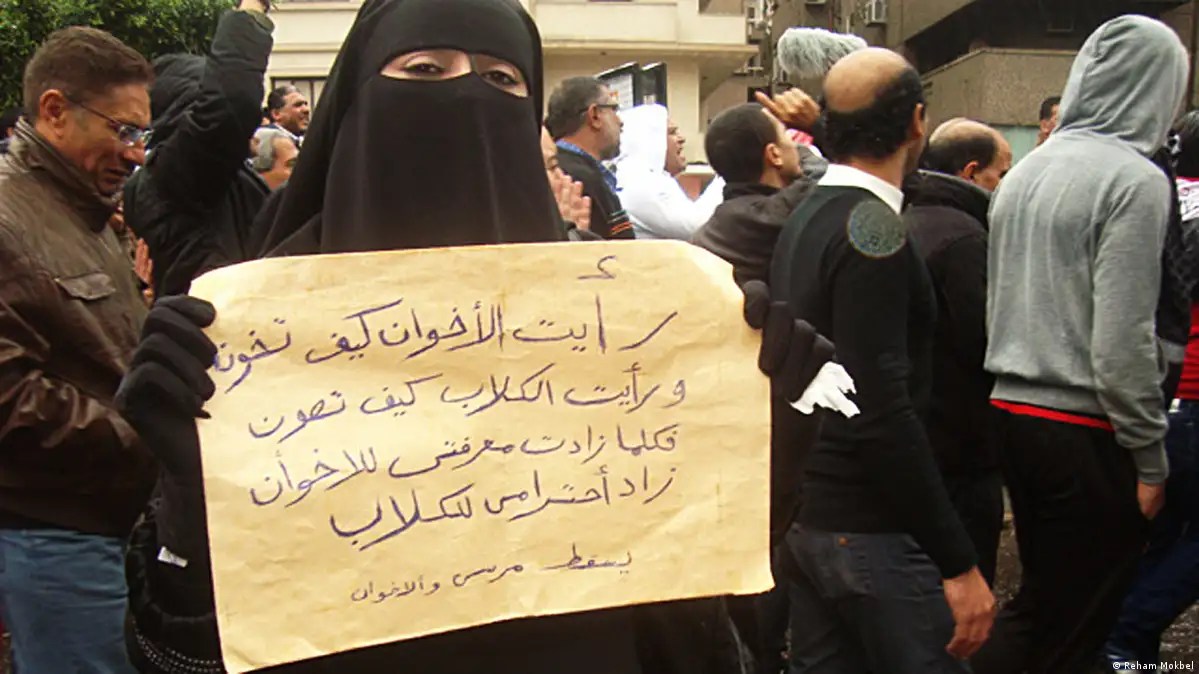 رأيت الأخوان كيف تخون
ورأيت الكلاب كيف تصون
فكلما زادت معرفتى للاخوأن
زاد أحترامى للكلاب
يسقط مرسى والاخوان
© Reham Mokbel